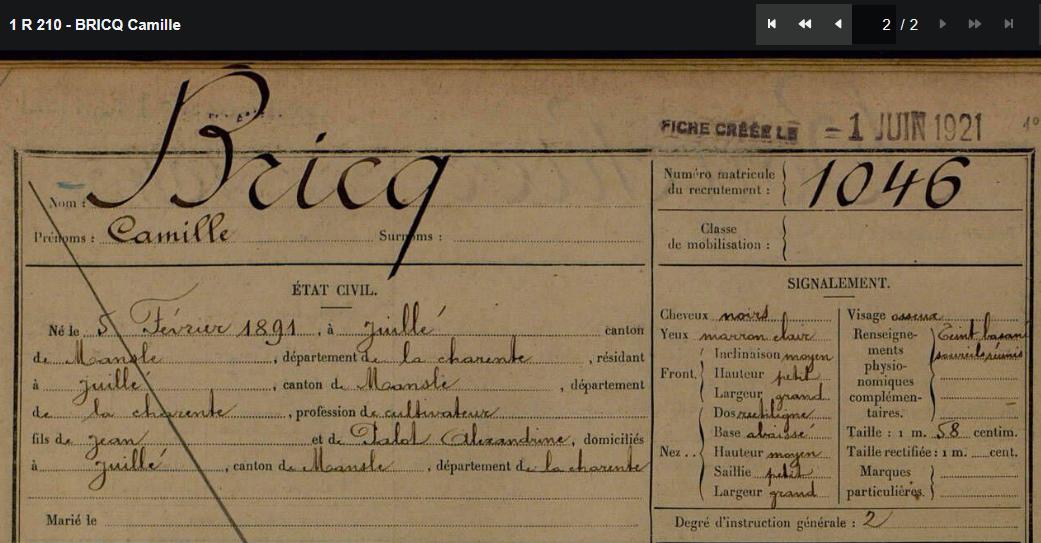 1 R 210 - BRICQ Camille
2 / 2
FICHE CRÉÉE LE - 1 JUIN 1921
Nom : Bricq
Prénoms : Camille Surnoms :
ÉTAT CIVIL.
Né le 5 Février 1891, à Juillé canton
de Mansle, département de la charente, résidant
à Juillé, canton de Mansle, département
de la charente, profession de cultivateur
fils de Jean et de Palot Alexandrine, domiciliés
à Juillé, canton de Mansle, département de la charente
Marié le
Numéro matricule
du recrutement : 1046
Classe
de mobilisation :
SIGNALEMENT.
Cheveux noirs
Yeux marron clair
Front. Inclinaison moyen
Hauteur petit
Largeur grand
Nez .. Dos rectiligne
Base abaissé
Hauteur moyen
Saillie petit
Largeur grand
Visage osseux
Renseigne-
ments
physio-
nomiques
complémen-
taires.
Teint basané
sourcils réunis
Taille : 1 m. 58 centim.
Taille rectifiée : 1 m. cent.
Marques
particulières.
Degré d'instruction générale : 2